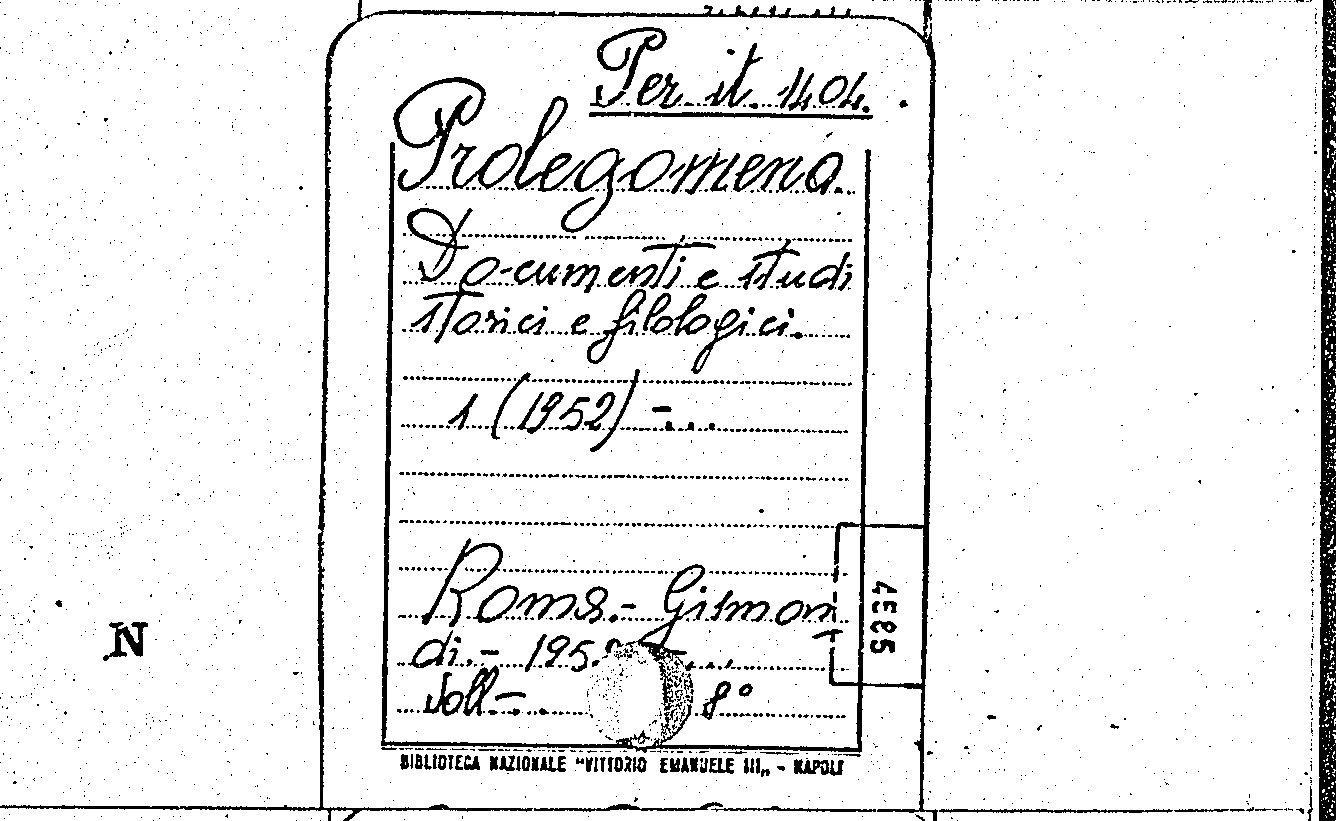 Per. it. 1404.
Prolegomena.
Documenti e studi
storici e filologici.
1 (1952) -...
Roma.- Gismon
di.- 195. ...
Voll.-.. 8°
4585
N
BIBLIOTECA NAZIONALE "VITTORIO EMANUELE III„ - NAPOLI